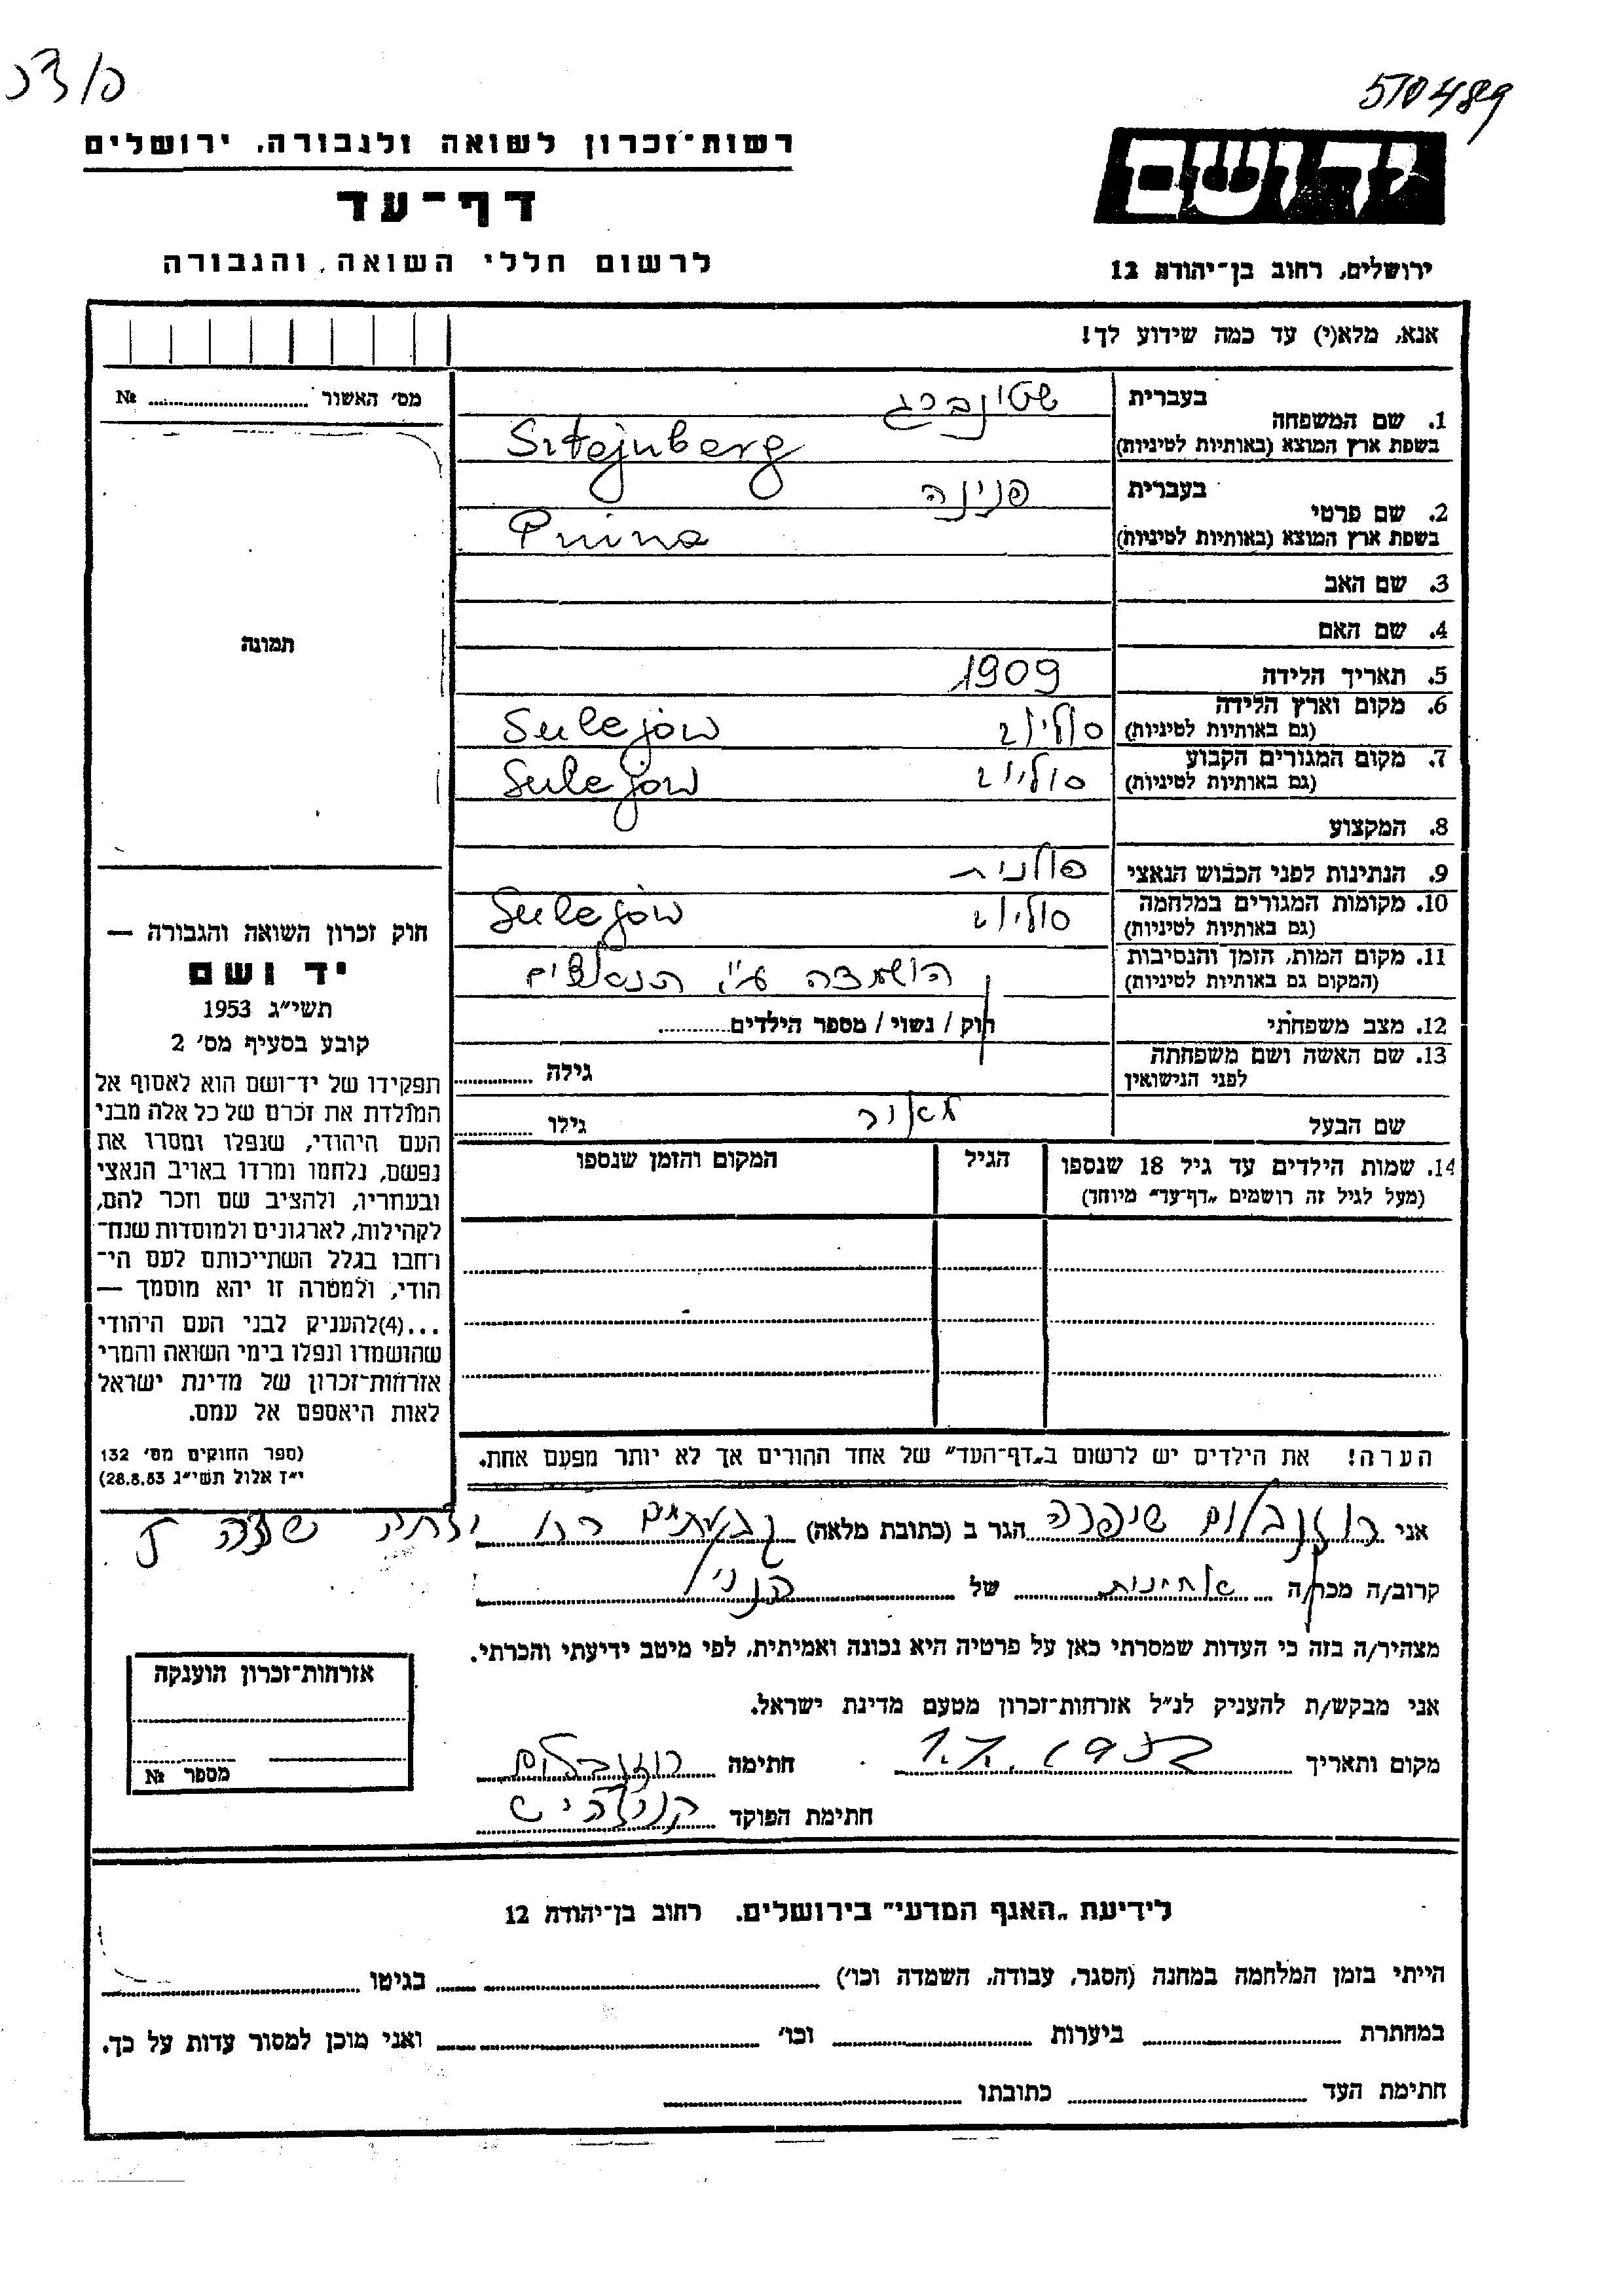 510489
רשות-זכרון לשואה ולגבורה, ירושלים
דף-עד
לרשום חללי השואה והגבורה
יד ושם
ירושלים, רחוב בן-יהודה 12
אנא, מלא(י) עד כמה שידוע לך!
מס' האשור № 
תמונה
1. שם המשפחה בעברית שטינברג
בשפת ארץ המוצא (באותיות לטיניות) Sztejnberg
2. שם פרטי בעברית פנינה
בשפת ארץ המוצא (באותיות לטיניות) Pnina
3. שם האב
4. שם האם
5. תאריך הלידה 1909
6. מקום וארץ הלידה (גם באותיות לטיניות) סוליוב Sulejów
7. מקום המגורים הקבוע (גם באותיות לטיניות) סוליוב Sulejów
8. המקצוע
9. הנתינות לפני הכבוש הנאצי פולנית
10. מקומות המגורים במלחמה (גם באותיות לטיניות) סוליוב Sulejów
11. מקום המות, הזמן והנסיבות (המקום גם באותיות לטיניות) הושמדה ע"י הנאצים
12. מצב משפחתי רוק / נשוי / מספר הילדים
13. שם האשה ושם משפחתה לפני הנישואין גילה
שם הבעל מאור גילו
14. שמות הילדים עד גיל 18 שנספו
(מעל לגיל זה רושמים "דף-עד" מיוחד)
הגיל
המקום והזמן שנספו
חוק זכרון השואה והגבורה —
יד ושם
תשי"ג 1953
קובע בסעיף מס' 2
תפקידו של יד-ושם הוא לאסוף אל
המולדת את זכרם של כל אלה מבני
העם היהודי, שנפלו ומסרו את
נפשם, נלחמו ומרדו באויב הנאצי
ובעוזריו, ולהציב שם וזכר להם,
לקהילות, לארגונים ולמוסדות שנח-
רבו בגלל השתייכותם לעם הי-
הודי, ולמטרה זו יהא מוסמך —
...(4)להעניק לבני העם היהודי
שהושמדו ונפלו בימי השואה והמרי
אזרחות-זכרון של מדינת ישראל
לאות היאספם אל עמם.
(ספר החוקים מס' 132
י"ז אלול תשי"ג 28.8.53)
הערה! את הילדים יש לרשום ב"דף-העד" של אחד ההורים אך לא יותר מפעם אחת.
אני רוזנבלום שיפרה הגר ב (כתובת מלאה) גבעתיים רח' יצחק שדה 7
קרוב/ה מכר/ה אחינית של הנ"ל
מצהיר/ה בזה כי העדות שמסרתי כאן על פרטיה היא נכונה ואמיתית, לפי מיטב ידיעתי והכרתי.
אני מבקש/ת להעניק לנ"ל אזרחות-זכרון מטעם מדינת ישראל.
מקום ותאריך חתימה רוזנבלום
חתימת הפוקד
אזרחות-זכרון הוענקה
מספר №
לידיעת "האגף המדעי" בירושלים. רחוב בן-יהודה 12
הייתי בזמן המלחמה במחנה (הסגר, עבודה, השמדה וכו') בגיטו
במחתרת ביערות וכו' ואני מוכן למסור עדות על כך.
חתימת העד כתובתו